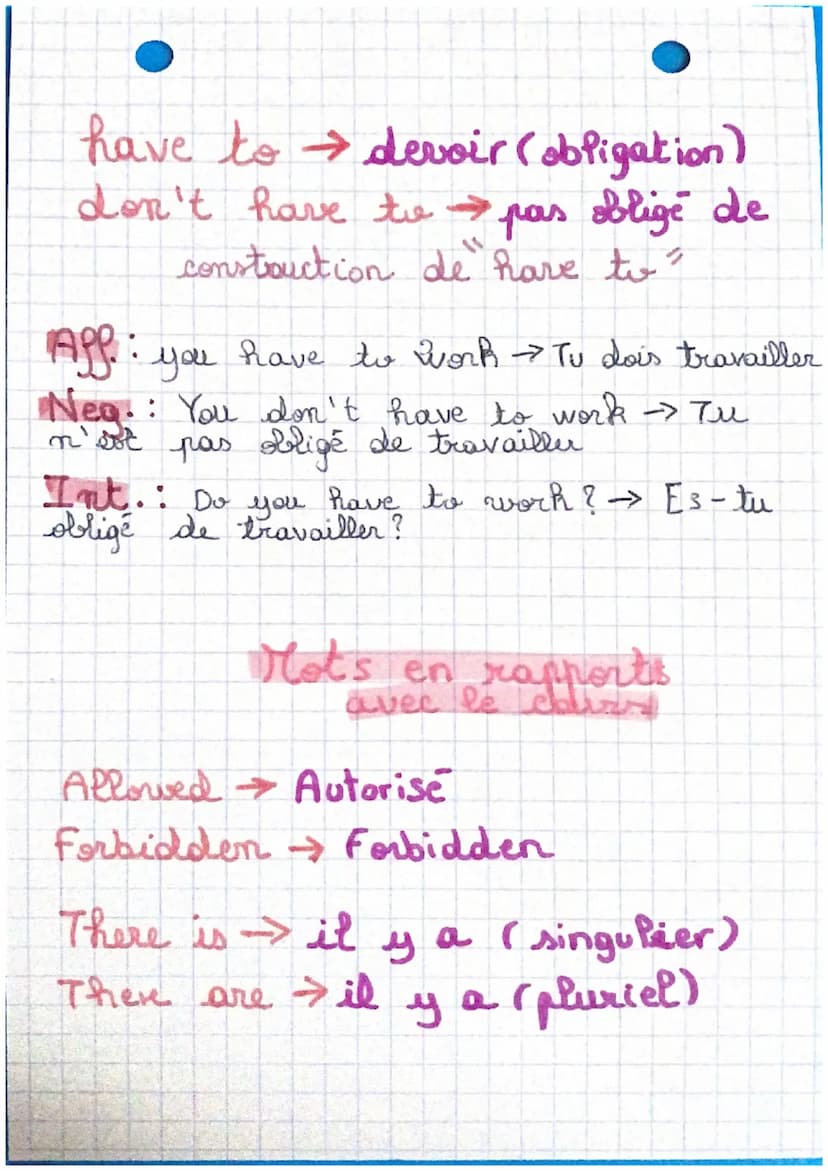 have to → devoir (obligation)
don't have to → pas obligé de
construction de "have to"
Aff.: you have to work → Tu dois travailler
Neg.: You don't have to work → Tu
n'est pas obligé de travailler
Int.: Do you have to work? → Es-tu
obligé de travailler?
Mots en rapports
avec le cours
Allowed → Autorisé
Forbidden → Forbidden
There is → il y a (singulier)
There are → il y a (pluriel)